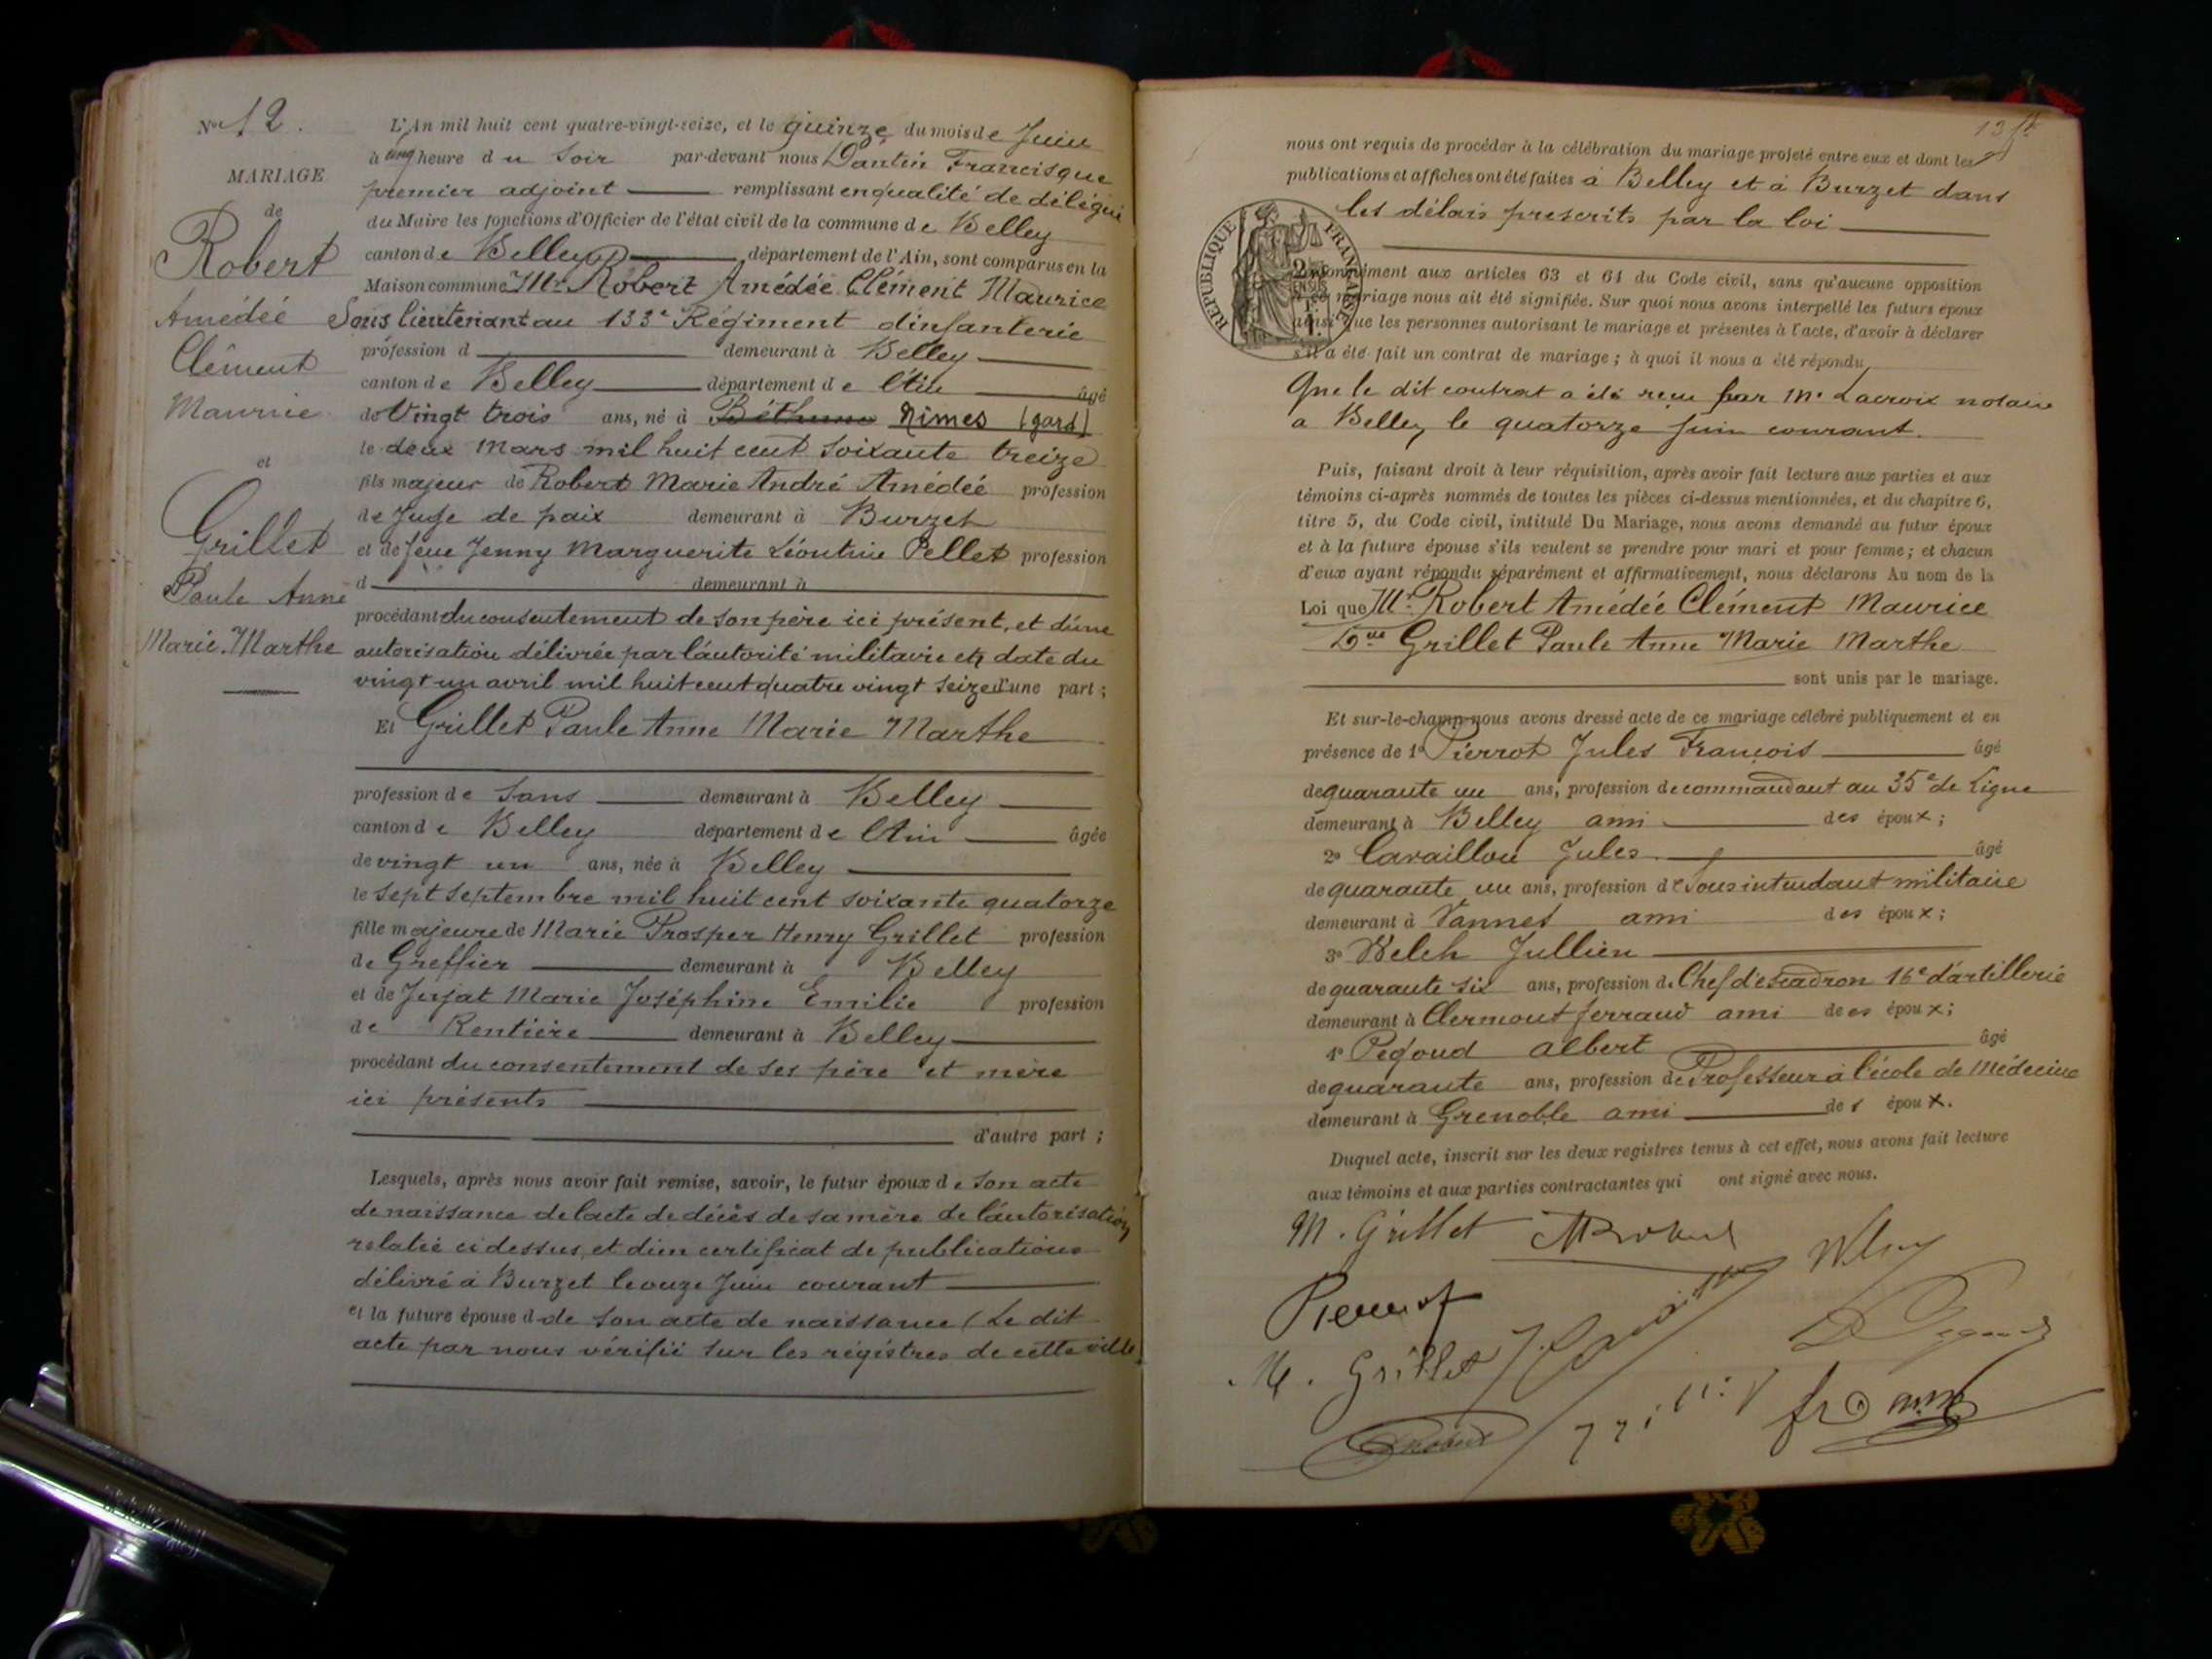 No 12.
MARIAGE
de
Robert
Amédée
Clément
Maurice
et
Grillet
Paule Anne
Marie Marthe
L'An mil huit cent quatre-vingt-seize, et le quinze du mois de Juin
à cinq heure du soir par-devant nous Dantin Francisque
premier adjoint remplissant en qualité de délégué
du Maire les fonctions d'Officier de l'état civil de la commune de Belley
canton de Belley département de l'Ain, sont comparus en la
Maison commune Mr Robert Amédée Clément Maurice
Sous lieutenant au 133e Régiment d'infanterie
profession d demeurant à Belley
canton de Belley département de l'Ain âgé
de Vingt trois ans, né à Béthune Nimes (gard)
le deux Mars mil huit cent soixante treize
fils majeur de Robert Marie André Amédée profession
de Juge de paix demeurant à Burzet
et de feue Jenny Marguerite Léontine Pellet profession
d demeurant à
procédant du consentement de son père ici présent, et d'une
autorisation délivrée par l'autorité militaire en date du
vingt un avril mil huit cent quatre vingt seize d'une part ;
Et Grillet Paule Anne Marie Marthe
profession de Sans demeurant à Belley
canton de Belley département de l'Ain âgée
de vingt un ans, née à Belley
le sept septembre mil huit cent soixante quatorze
fille majeure de Marie Prosper Henry Grillet profession
de Greffier demeurant à Belley
et de Jufat Marie Joséphine Emilie profession
de Rentière demeurant à Belley
procédant du consentement de ses père et mère
ici présents
d'autre part ;
Lesquels, après nous avoir fait remise, savoir, le futur époux de son acte
de naissance de l'acte de décès de sa mère de l'autorisation
relatée ci dessus, et d'un certificat de publications
délivré à Burzet le onze Juin courant
et la future épouse d de son acte de naissance (Le dit
acte par nous vérifié sur les régistres de cette ville
nous ont requis de procéder à la célébration du mariage projeté entre eux et dont les
publications et affiches ont été faites à Belley et à Burzet dans
les délais prescrits par la loi
RÉPUBLIQUE FRANÇAISE
Conformément aux articles 63 et 64 du Code civil, sans qu'aucune opposition
à ce mariage nous ait été signifiée. Sur quoi nous avons interpellé les futurs époux
ainsi que les personnes autorisant le mariage et présentes à l'acte, d'avoir à déclarer
s'il a été fait un contrat de mariage ; à quoi il nous a été répondu
Que le dit contrat a été reçu par Me Lacroix notaire
a Belley le quatorze juin courant.
Puis, faisant droit à leur réquisition, après avoir fait lecture aux parties et aux
témoins ci-après nommés de toutes les pièces ci-dessus mentionnées, et du chapitre 6,
titre 5, du Code civil, intitulé Du Mariage, nous avons demandé au futur époux
et à la future épouse s'ils veulent se prendre pour mari et pour femme ; et chacun
d'eux ayant répondu séparément et affirmativement, nous déclarons Au nom de la
Loi que Mr Robert Amédée Clément Maurice
Dlle Grillet Paule Anne Marie Marthe
sont unis par le mariage.
Et sur-le-champ nous avons dressé acte de ce mariage célébré publiquement et en
présence de 1o Pierrot Jules François âgé
de quarante un ans, profession de commandant au 35e de Ligne
demeurant à Belley ami des époux ;
2o Cavaillou Jules âgé
de quarante un ans, profession de Sous intendant militaire
demeurant à Vannes ami des époux ;
3o Welch Jullien
de quarante six ans, profession de Chef d'escadron 16e d'artillerie
demeurant à Clermont ferrand ami des époux ;
4o Pegoud albert âgé
de quarante ans, profession de Professeur à l'école de Médecine
demeurant à Grenoble ami des époux.
Duquel acte, inscrit sur les deux registres tenus à cet effet, nous avons fait lecture
aux témoins et aux parties contractantes qui ont signé avec nous.
M. Grillet
Pierrot
M. Grillet